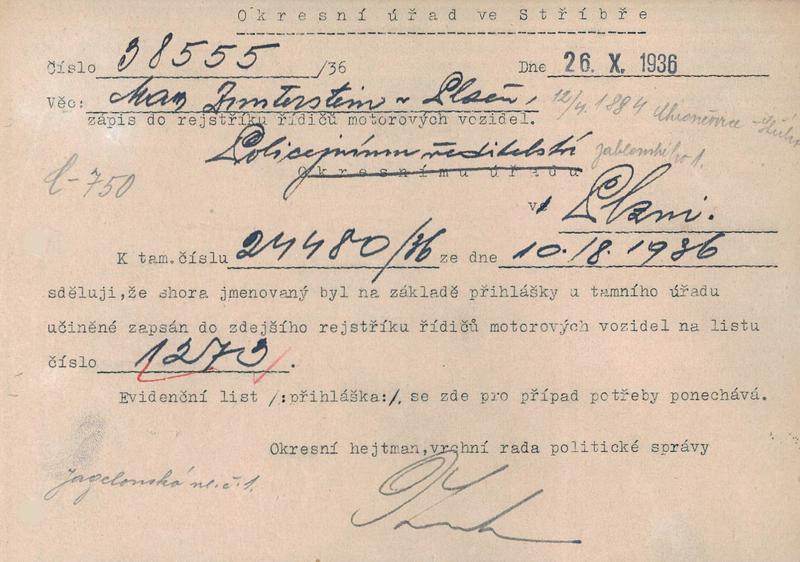 Okresní úřad ve Stříbře
Číslo 38555 /36 Dne 26. X. 1936
Věc: Max Zunterstein - Plzeň,
12/4. 1884
zápis do rejstříku řídičů motorových vozidel.
Policejnímu ředitelství
Jablonského 1.
Okresnímu úřadu
č-750
v Plzni.
K tam.číslu 24480/36 ze dne 10.18.1936
sděluji,že shora jmenovaný byl na základě přihlášky u tamního úřadu
učiněné zapsán do zdejšího rejstříku řídičů motorových vozidel na listu
číslo 1273.
Evidenční list /:přihláška:/, se zde pro případ potřeby ponechává.
Okresní hejtman,vrchní rada politické správy
Jagelonská ul.č.1.